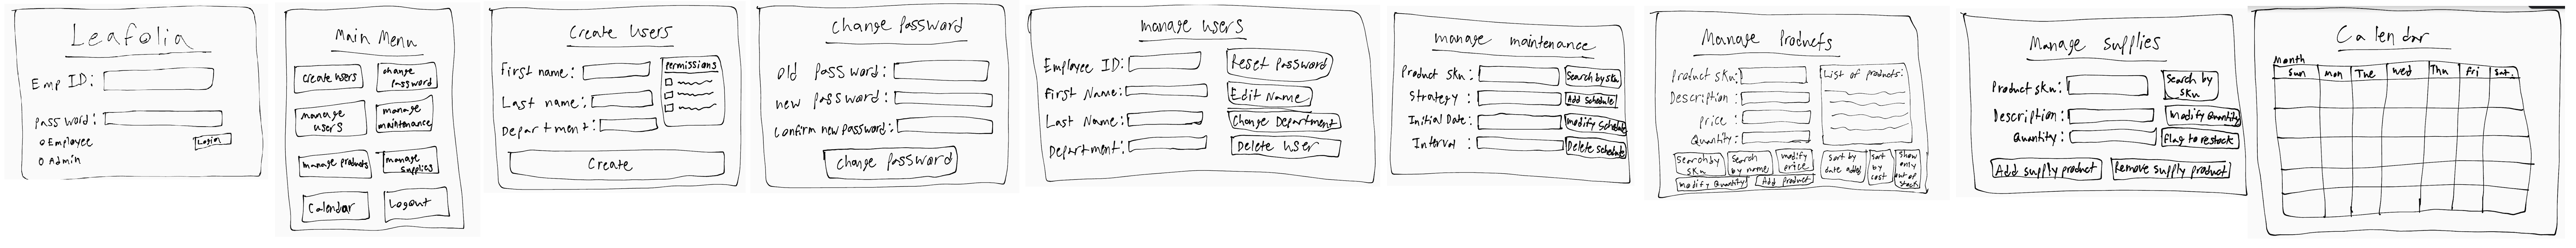 Leafolia
Emp ID:
password:
Employee
Admin
Login
Main Menu
create users
change password
manage users
manage maintenance
manage products
manage supplies
Calendar
Logout
Create Users
First name:
Last name:
Department:
Permissions
Create
Change Password
Old password:
new password:
Confirm new password:
Change Password
manage users
Employee ID:
First Name:
Last Name:
Department:
Reset Password
Edit Name
Change Department
Delete User
manage maintenance
Product sku:
Strategy:
Initial Date:
Interval:
Search by sku
Add Schedule
modify Schedule
Delete Schedule
Manage Products
Product sku:
Description:
Price:
Quantity:
List of products:
Search by sku
Search by name
modify price
Sort by date added
Sort by cost
Show only out of stock
modify Quantity
Add product
Manage Supplies
Product sku:
Description:
Quantity:
Search by sku
Modify Quantity
flag to restock
Add supply product
Remove supply product
Calendar
Month
Sun mon Tue Wed Thu Fri Sat.